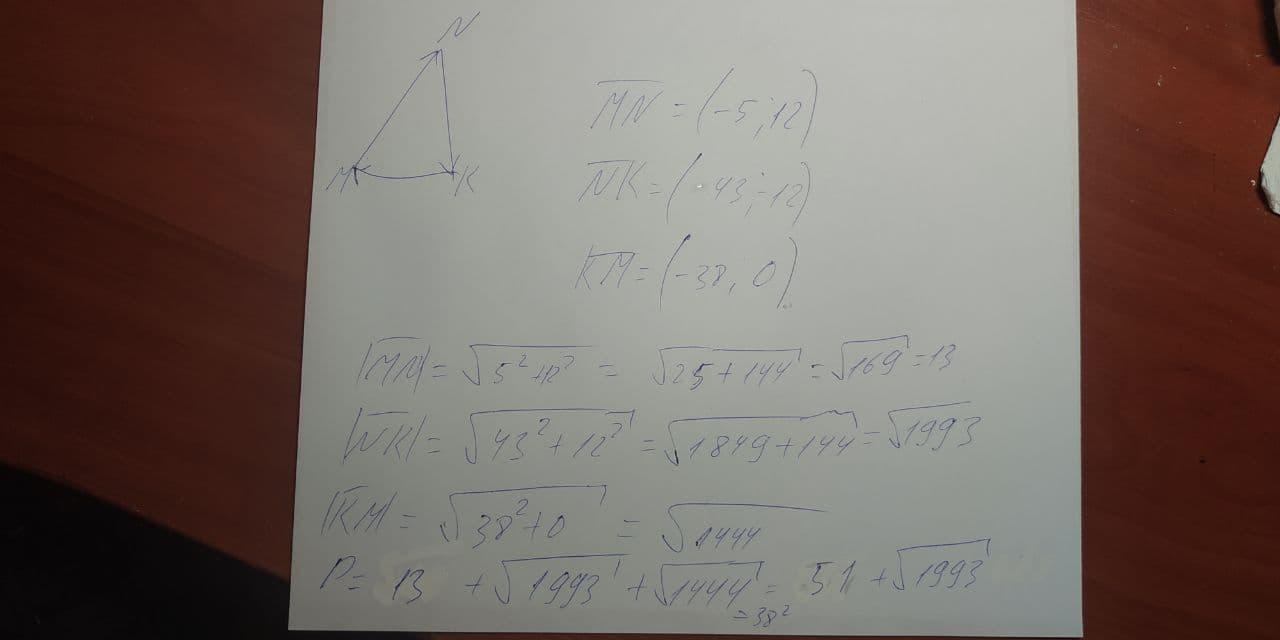 N
M K
MN = (-5; 12)
NK = (43; -12)
KM = (-38; 0)
|MN| = √5²+12² = √25+144 = √169 = 13
|NK| = √43²+12² = √1849+144 = √1993
|KM| = √38²+0 = √1444
P = 13 + √1993 + √1444 = 51 + √1993
= 38²